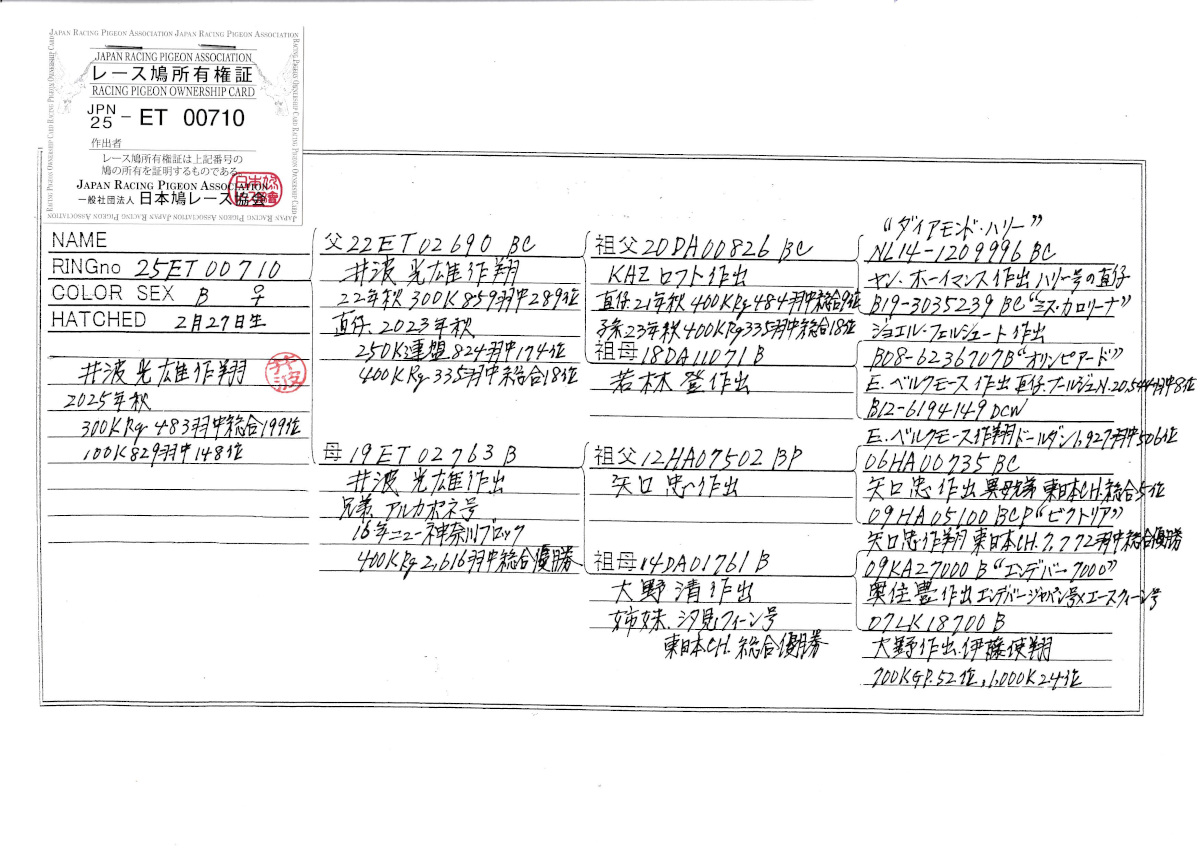 JAPAN RACING PIGEON ASSOCIATION JAPAN RACING PIGEON ASSOCIATION
RACING PIGEON OWNERSHIP CARD
JAPAN RACING PIGEON ASSOCIATION
レース鳩所有権証
RACING PIGEON OWNERSHIP CARD
JPN
25 - ET 00710
作出者
レース鳩所有権証は上記番号の
鳩の所有を証明するものである。
JAPAN RACING PIGEON ASSOCIATION
一般社団法人 日本鳩レース協会
NAME
RINGno 25ET00710
COLOR SEX B ♀
HATCHED 2月27日生
井波 光雄作翔
井波
2025年秋
300KRg 483羽中総合199位
100K829羽中148位
父22ET02690 BC
井波 光雄作翔
22年秋 300K859羽中289位
直仔、2023年秋
250K連盟824羽中174位
400KRg 335羽中総合18位
母19ET02763 B
井波 光雄作出
兄弟、アルカポネ号
16年ニュー神奈川ブロック
400KRg2,616羽中総合優勝
祖父20DA00826 BC
KAZロフト作出
直仔21年秋400KRg484羽中総合9位
孫23年秋400KRg335羽中総合18位
祖母18DA11071 B
若林 登作出
祖父12HA07502 BP
矢口 忠作出
祖母14DA01761 B
大野 清作出
姉妹、汐見クィーン号
東日本CH. 総合優勝
“ダイアモンド・ハリー”
NL14-1209996 BC
ヤン・ホーイマンス作出 ハリー号の直仔
B19-3035239 BC “ミス・カロリーナ”
ジョエル・フェルシュート 作出
B08-6236707B “オリンピアード”
E. ベルクモース 作出 直仔、ブールジュN.20,544羽中8位
B12-6194149 DCW
E. ベルクモース作翔ドールダン1,927羽中506位
06HA00735 BC
矢口 忠 作出 異母兄弟 東日本CH.総合5位
09HA05100 BCP “ビクトリア”
矢口忠作翔 東日本CH.7,772羽中総合優勝
09KA27000 B “エンデバー7000”
奥住豊作出エンデバージャパン号×エースクィーン号
07LK18700 B
大野作出、伊藤使翔
700KGP.52位、1,000K24位